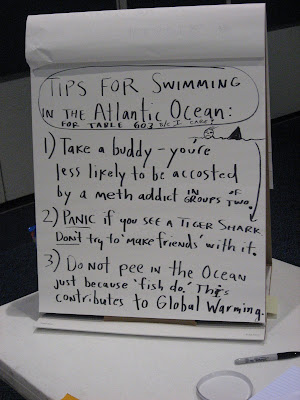 TIPS FOR SWIMMING
IN THE Atlantic Ocean:
FOR TABLE 603 b/c I CARE!
1) Take a buddy - you're
less likely to be accosted
by a meth addict IN GROUPS OF TWO.
2) PANIC if you see a TIGER SHARK
DON'T try to 'make friends' with it.
3) Do not pee in the Ocean
just because 'fish do.' This
contributes to Global Warming.